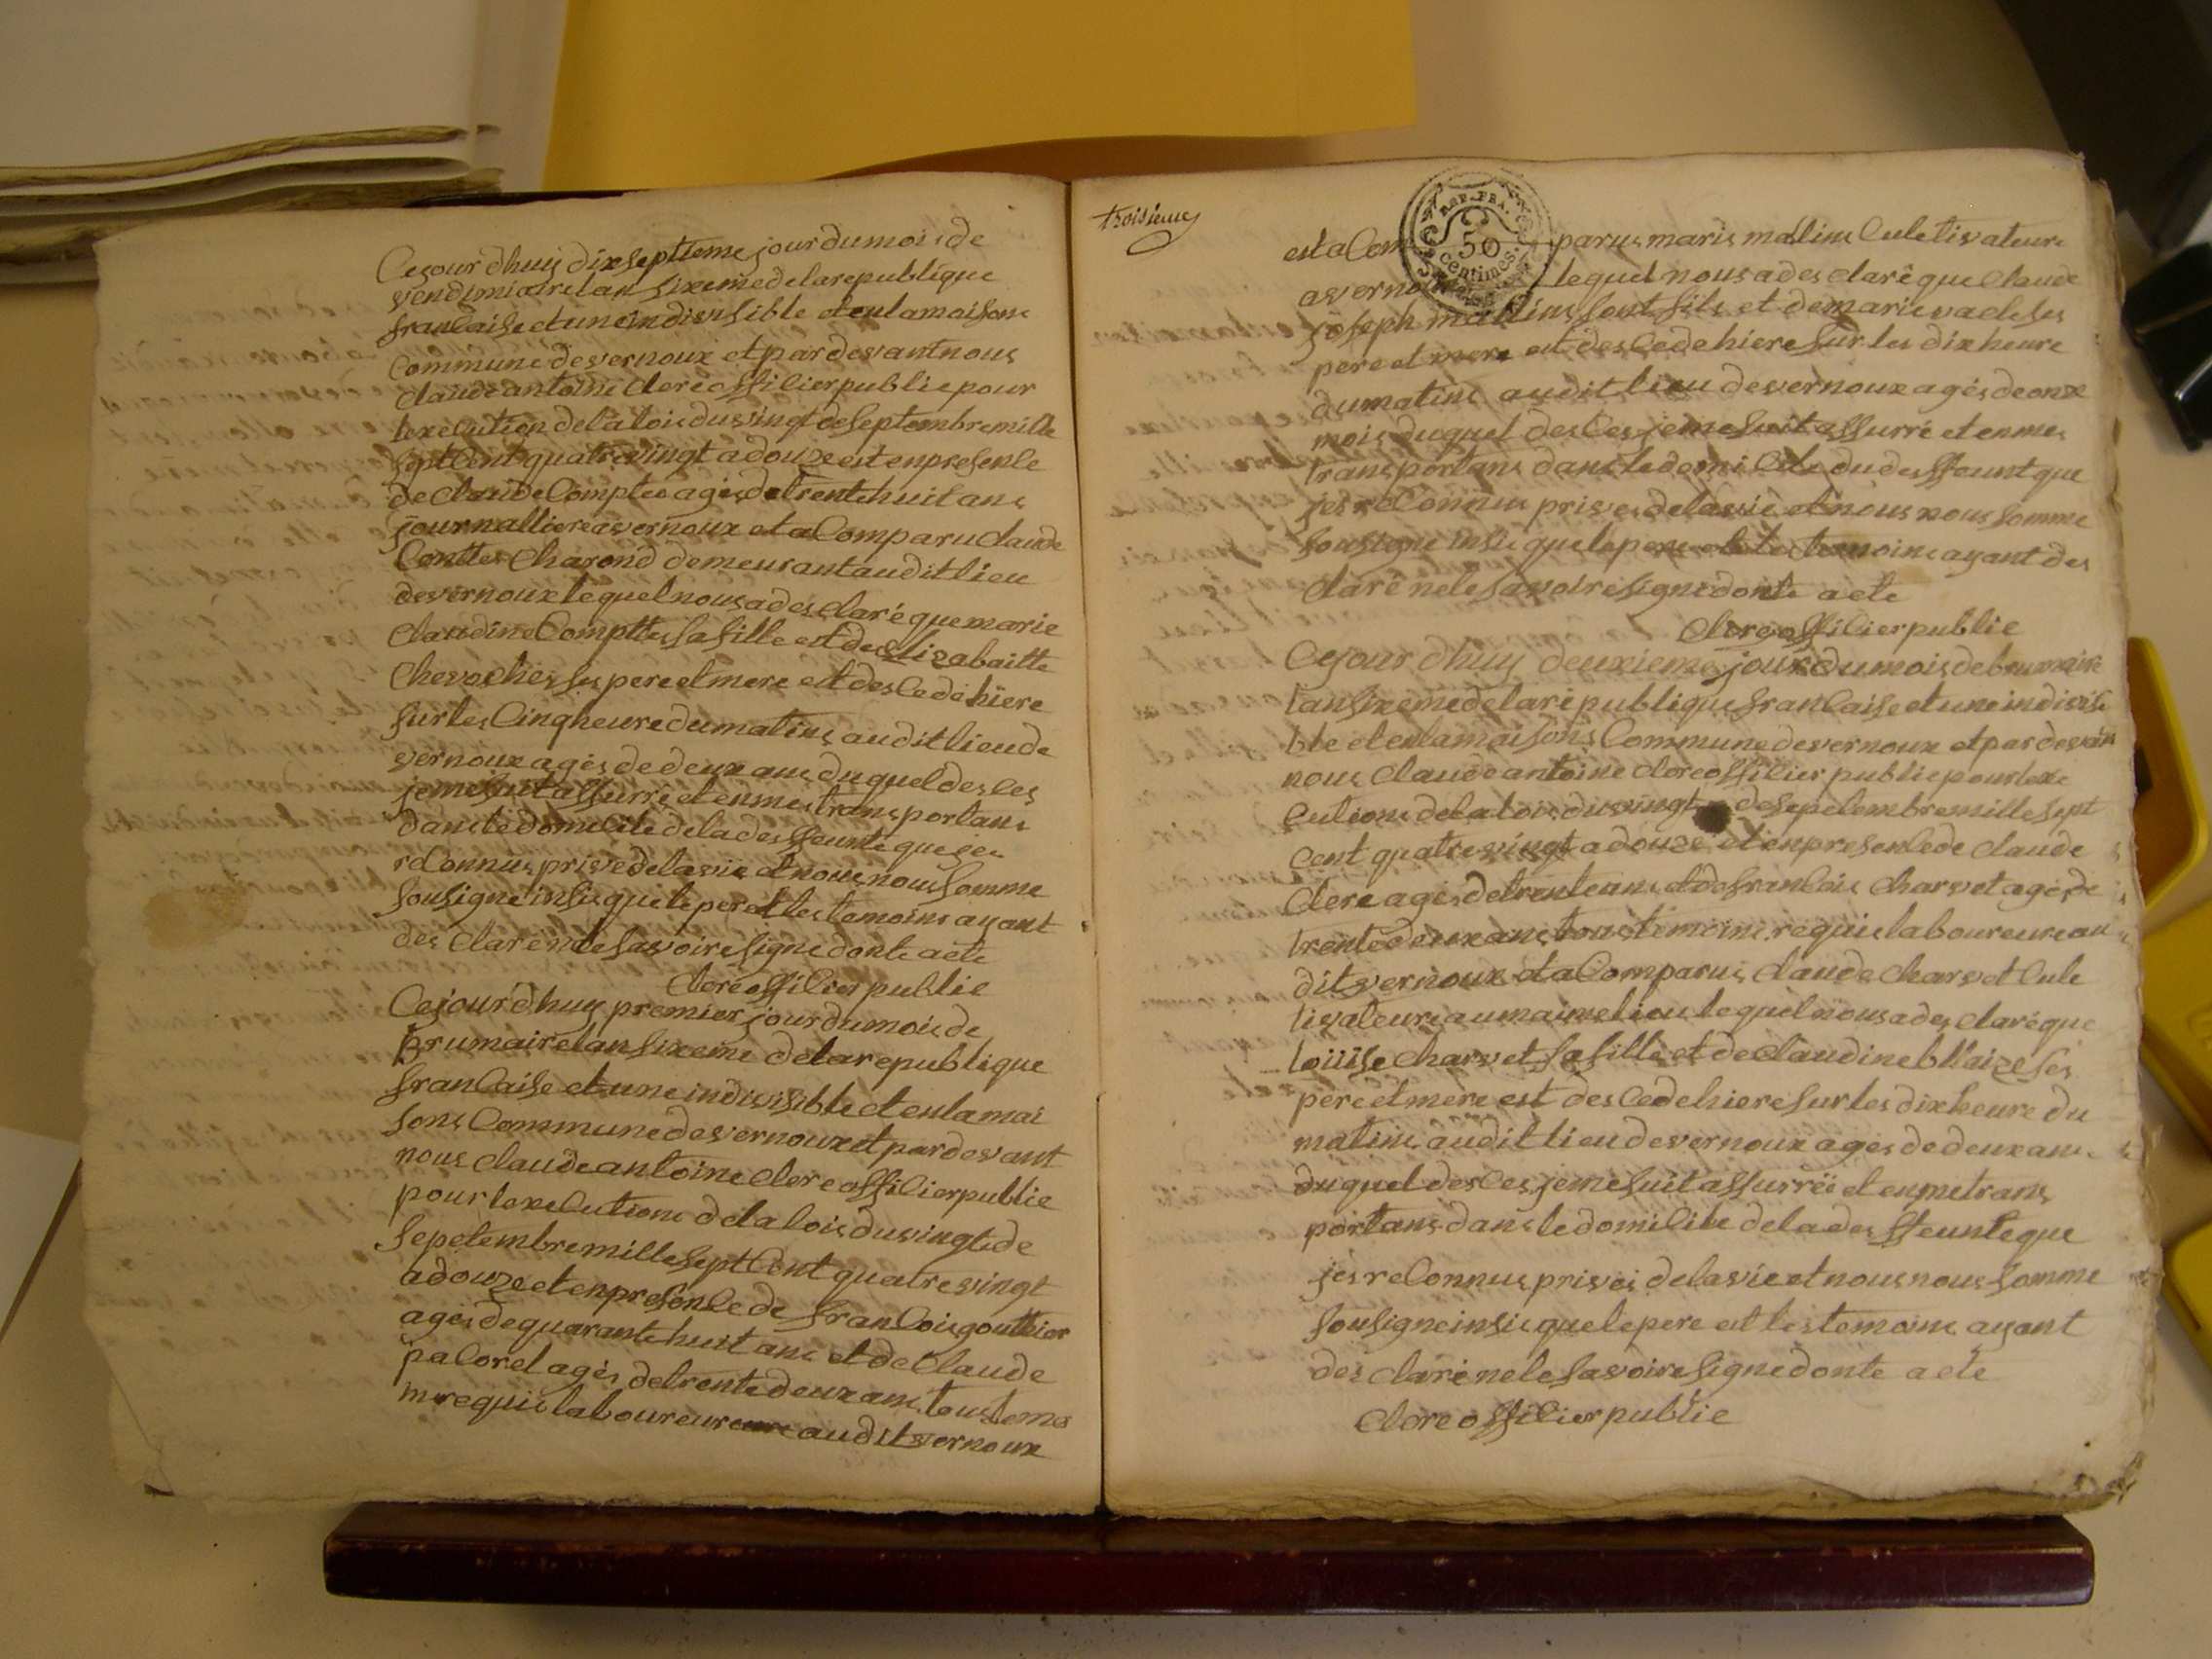 Cejour dhuy dixseptieme jour dumois de
vendimiaire lan sixeme delarepublique
francaise etuneindivisible etenlamaisons
commune devernoux et pardevantnous
claude antoine clere officier publie pour
lexecution delalois duvingt deseptembre mille
sept cent quatrevingt adouze est enpresence
de claude Comptes agés detrentehuit ans
journalliere avernoux et a Comparu claude
Conttes charond demeurantaudit lieu
devernoux lequel nousades claré que marie
claudine Comptes sa fille et de Elizabaitte
chevoches ses pere et mere est descedé hiere
sur les Cinq heure dumatins audit lieu de
vernoux agés de deux ans duquel desces
jemesuit assurré et enmes transportans
dans le domicile de la desffeunte que jes
reConnus privé delavie et nous nous somme
sousigné insis que le pere et les temoins ayant
des claré nele savoire signé donte acte
clere officier publie
Cejour dhuy premier jour dumois de
brumaire lan sixeme delarepublique
francaise et une indivisible et enlamai
sons Commune devernoux et pardevant
nous claude antoine clere officier publie
pour lexecutions delalois duvingt de
sepetembre mille sept Cent quatrevingt
adouze et enpresence de francois gouttier
agés dequarante huit ans et de Claude
pacoret agés detrente deux ans tous temo
ms requis laboureur audit vernoux
troisieme
est a Com parus maris mallins Culetivateure
avernoux lequel nousades claré que claude
joseph mallins sont fils et demarie vacle ses
pere et mere est descedé hiere sur les dix heure
dumatins audit lieu devernoux agés de onze
mois duquel desces jemesuit assurré et enmes
transportans dans ledomicile dudesffeunt que
jes reConnus privés delavie et nous nous somme
sousigné insis que le pere et le temoins ayant des
claré nele savoire signé donte acte
clere officier publie
Cejour dhuy deuxieme jour dumois debrumaire
lan sixeme delarépublique francaise etuneindivisi
ble et enlamaisons Commune devernoux et pardevant
nous claude antoine clere officier publie pour lexe
Cutions delalois duvingt desepetembre mille sept
Cent quatrevingt adouze et enpresence de claude
clere agés detrente ans et de francois charvet agés de
trente deux ans tous temoins requis laboureure au
dit vernoux et a Comparus claude charvet Cule
tivateure aumaime lieu lequel nousades claré que
loüise charvet sa fille et de claudine blaize ses
pere et mere est descedé hiere sur les dix heure du
matins audit lieu devernoux agés de deux ans
duquel desces jemesuit assurré et enme trans
portans dans ledomicile dela desffeunte que
jes reConnus privés delavie et nous nous somme
sousigné insis que le pere et les temoins ayant
des claré nele savoire signé donte acte
clere officier publie
REP. FRA.
50
centimes